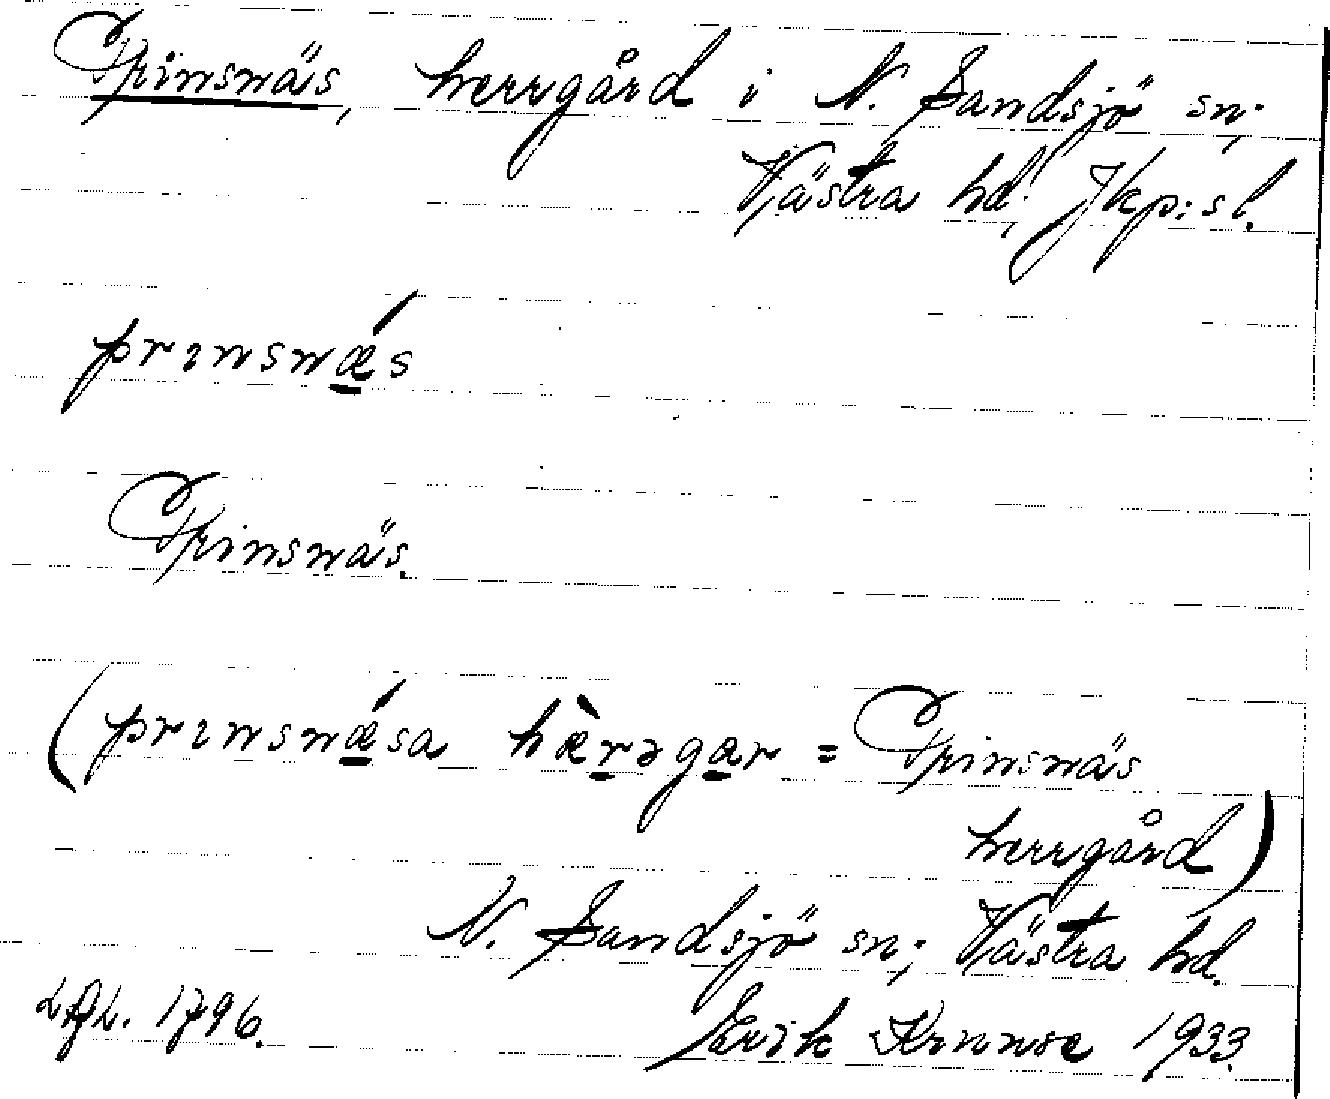 Prinsnäs, herrgård i N. Sandsjö sn;
Västra hd; Jkp:s l.
prınsnǽs
Prinsnäs.
(prınsnǽsa hæ̀rəgar = Prinsnäs
herrgård)
N. Sandsjö sn; Västra hd.
1796. Erik 1933.